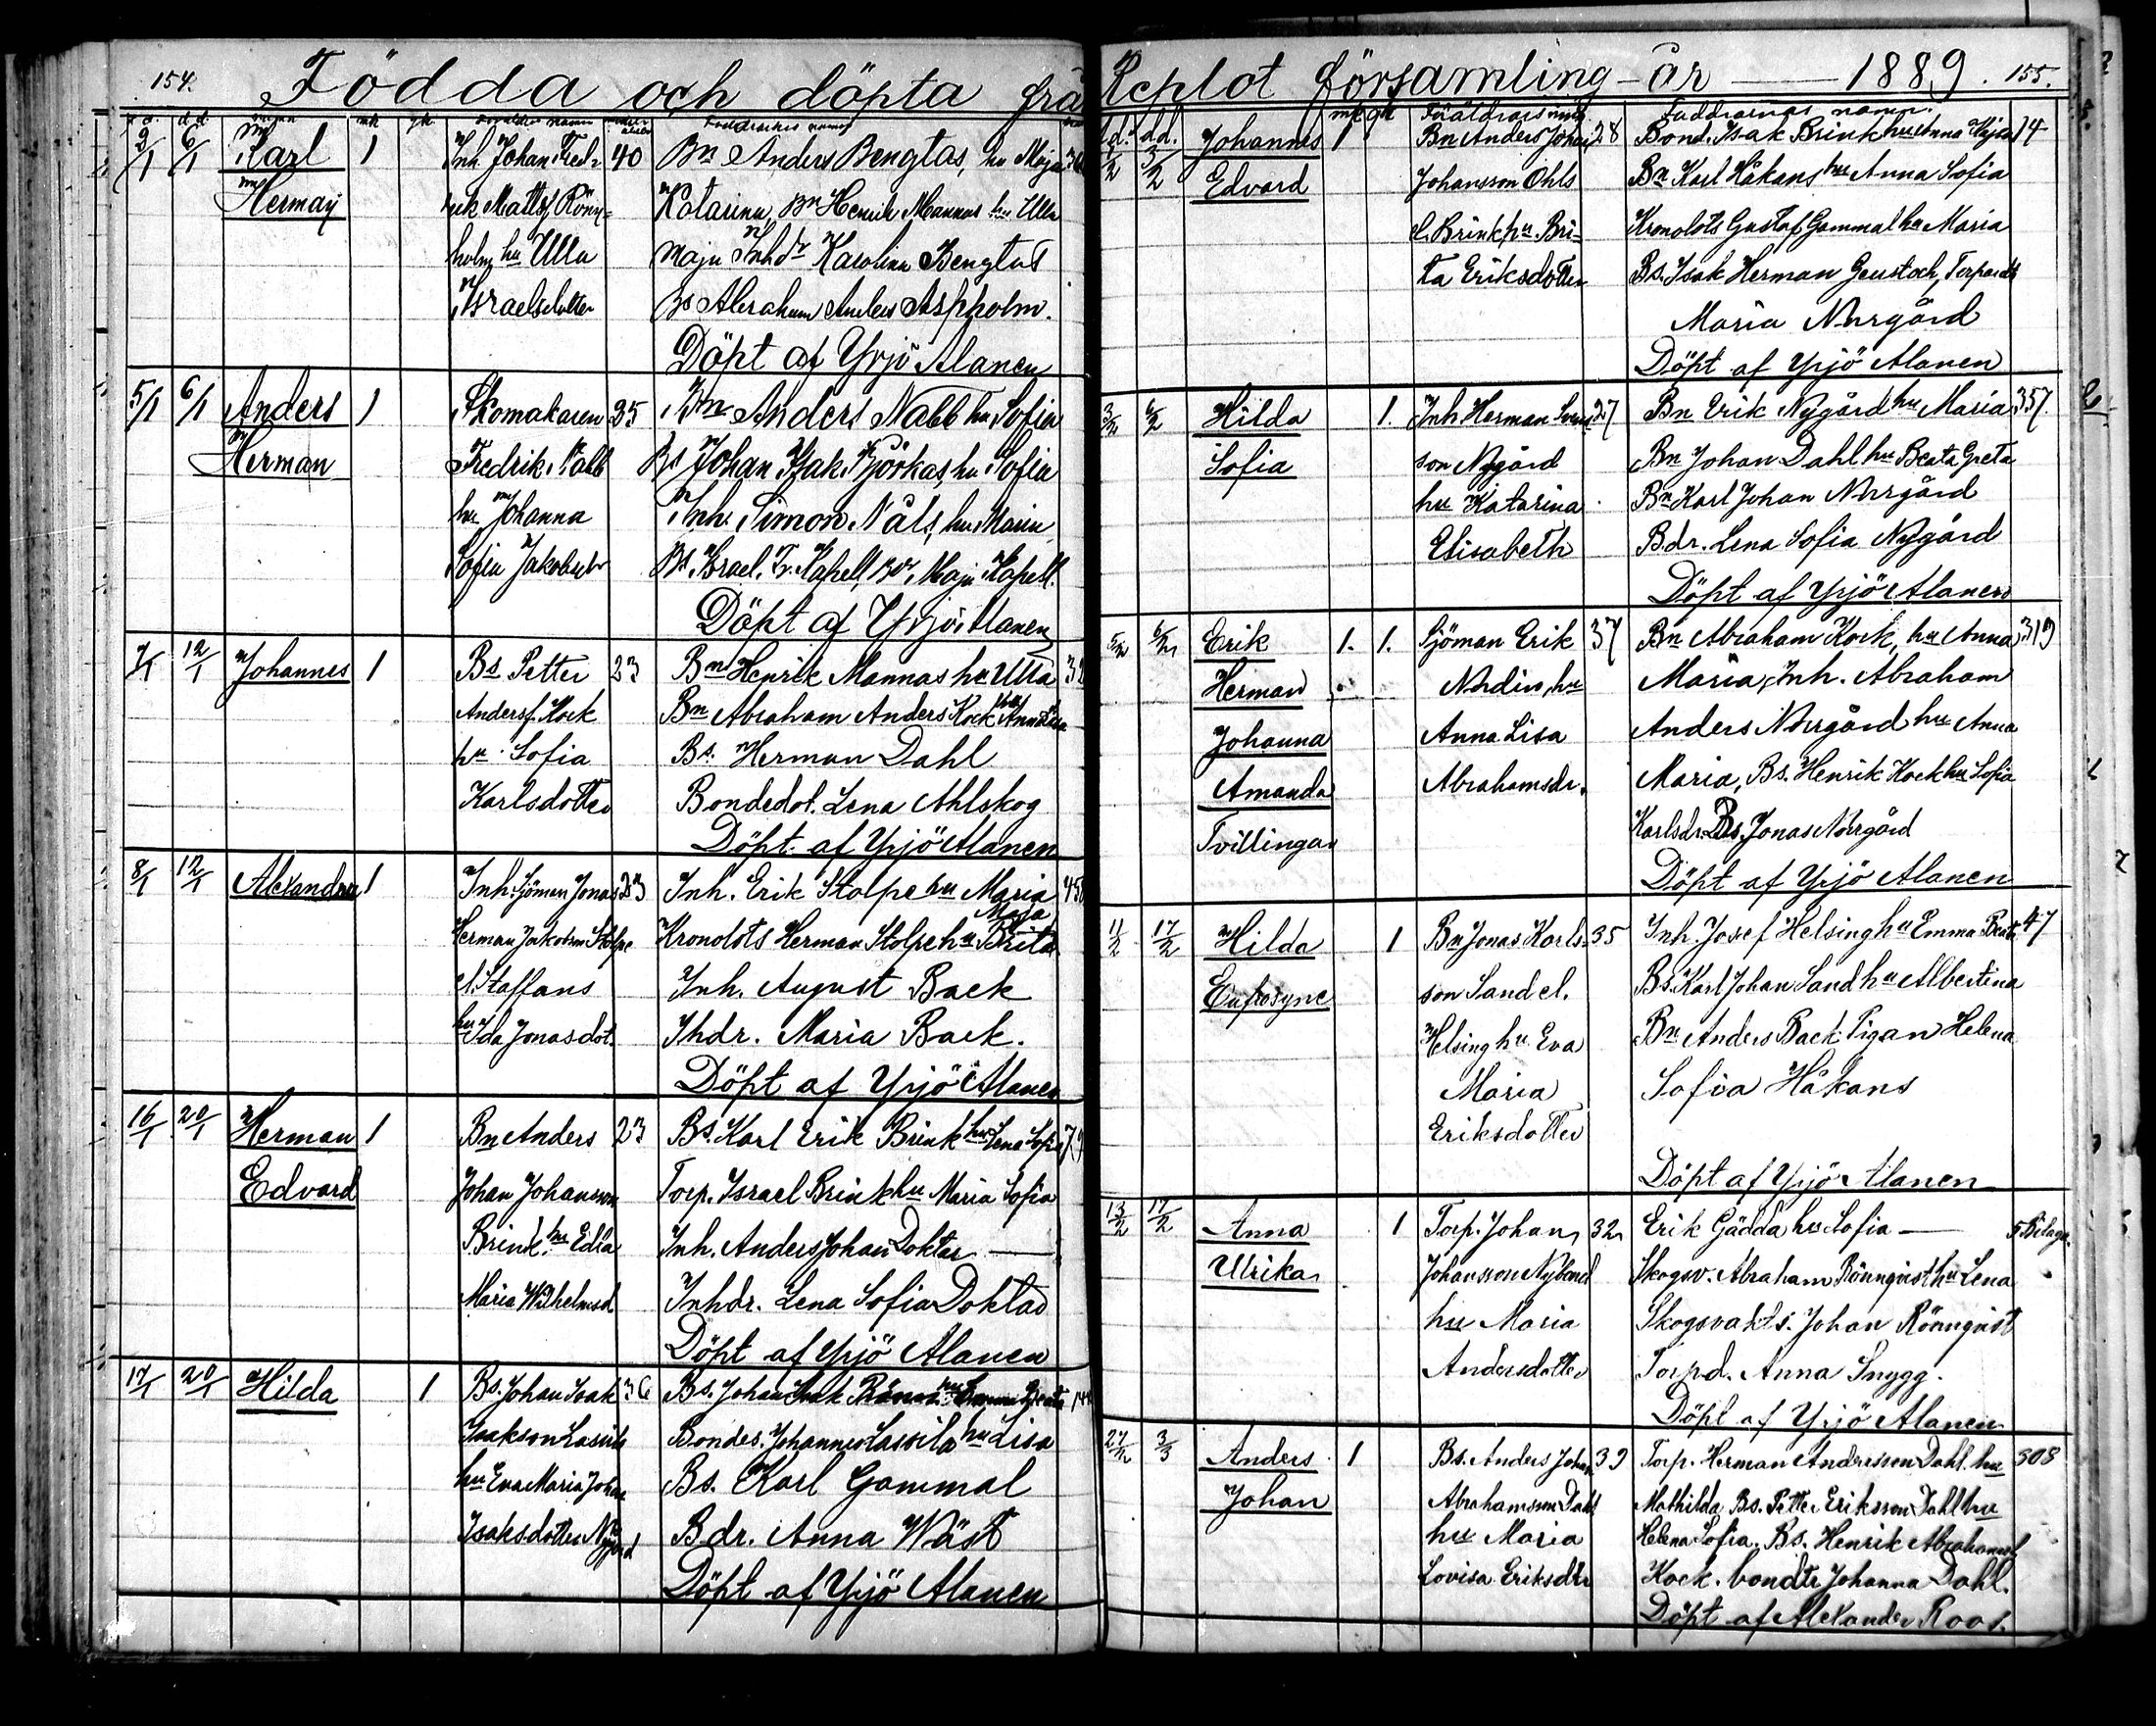 154.
Födda och döpta frå
2/1 6/1 Karl 1 Inh. Johan Fred- 40 Bn Anders Bengtas, hu Maja
Herman rik Mattsf Rönn- Katarina, Bn Henrik Mannas hu Ulla
holm, hu Ulla Maja Inhdr Karolina Bengtas
Israelsdotter Bs Abraham Anders Aspholm.
Döpt af Yrjö Alanen
5/1 6/1 Anders 1 Skomakaren 35 Bn Anders Nabb hu Sofia
Herman Fredrik Nabb Bs Johan Isak Björkas, hu Sofia
hu Johanna Inh. Simon Nåls, hu Maria
Sofia Jakobsdr Bs. Israel Fr. Kapell, Bdr. Maja Kapell.
Döpt af Yrjö Alanen
7/1 12/1 Johannes 1 Bs Petter 23 Bn Henrik Mannas hu Ulla 32
Andersf. Kock Bn Abraham Anders Kock hu Anna Lisa
hu Sofia Bs. Herman Dahl
Karlsdotter Bondedot. Lena Ahlskog
Döpt af Yrjö Alanen
8/1 12/1 Alexander 1 Inh. Sjöman Jonas 23 Inh. Erik Stolpe hu Maria
Maja
Herman Jakobson Stolpe Kronolots Herman Stolpe hu Brita
el. Staffans Inh. August Back
hu Ida Jonasdot. Ihdr. Maria Back.
Döpt af Yrjö Alanen
16/1 20/1 Herman 1 Bn Anders 23 Bs. Karl Erik Brink hu Lena Sofia
Edvard Johan Johansson Torp. Israel Brink hu Maria Sofia
Brink, hu Edla Inh. Anders Johan Doktar
Maria Wilhelmsd. Inhdr. Lena Sofia Doktar
Döpt af Yrjö Alanen
17/1 20/1 Hilda 1 Bs. Johan Isak 36 Bs. Johan Isak hu Beata
Isakson Lassila Bondes. Johannes Lassila hu Lisa
hu Eva Maria Johans Bs. Karl Gammal
Isaksdotter Nygård Bdr. Anna Wäst
Döpt af Yrjö Alanen
Replot församling - år — 1889. 155.
f.d. d.d. mk qk Föräldrars namn Faddrarnas namn.
2/2 3/2 Johannes 1 Bn Anders Johan 28 Bond. Isak Brink hu Anna Kajsa 14
Edvard Johansson Ohls Bn Karl Håkans hu Anna Sofia
el. Brink hu Bri- Kronolots Gustaf Gammal hu Maria
ta Eriksdotter Bs. Isak Herman Genstoch, Torpardr
Maria Norrgård
Döpt af Yrjö Alanen
3/2 6/2 Hilda 1. Inh. Herman Svens- 27 Bn Erik Nygård hu Maria 357.
Sofia son Nygård Bn Johan Dahl hu Beata Greta
hu Katarina Bn Karl Johan Norrgård
Elisabeth Bdr. Lena Sofia Nygård
Döpt af Yrjö Alanen
5/2 6/2 Erik 1. 1. Sjöman Erik 37 Bn Abraham Kock, hu Anna 319
Herman Nordin, hu Maria, Inh. Abraham
Johanna Anna Lisa Anders Norrgård hu Anna
Amanda Abrahamsdr. Maria, Bs. Henrik Kock hu Sofia
Tvillingar Karlsdr. Bs. Jonas Norrgård
Döpt af Yrjö Alanen
11/2 17/2 Hilda 1 Bn Jonas Karls- 35 Inh. Josef Helsing hu Emma Beata 47
Eufrosyne son Sand el. Bs. Karl Johan Sand hu Albertina
Helsing hu Eva Bn Anders Back Pigan Helena
Maria Sofia Håkans
Eriksdotter
Döpt af Yrjö Alanen
13/2 17/2 Anna 1 Torp. Johan 32 Erik Gädda hu Sofia — 5 Bilaga.
Ulrika Johansson Nyband Skogsv. Abraham Rönnqvist hu Lena
hu Maria Skogsvakts. Johan Rönnqvist
Andersdotter Torpd. Anna Snygg.
Döpt af Yrjö Alanen
27/2 3/3 Anders 1 Bs. Anders Johan 39 Torp. Herman Andersson Dahl. hu 308
Johan Abrahamsson Dahl Mathilda Bs. Petter Eriksson Dahl hu
hu Maria Helena Sofia. Bs. Henrik Abrahamsf
Lovisa Eriksdtr Kock. bondtr Johanna Dahl.
Döpt af Alexander Roos.